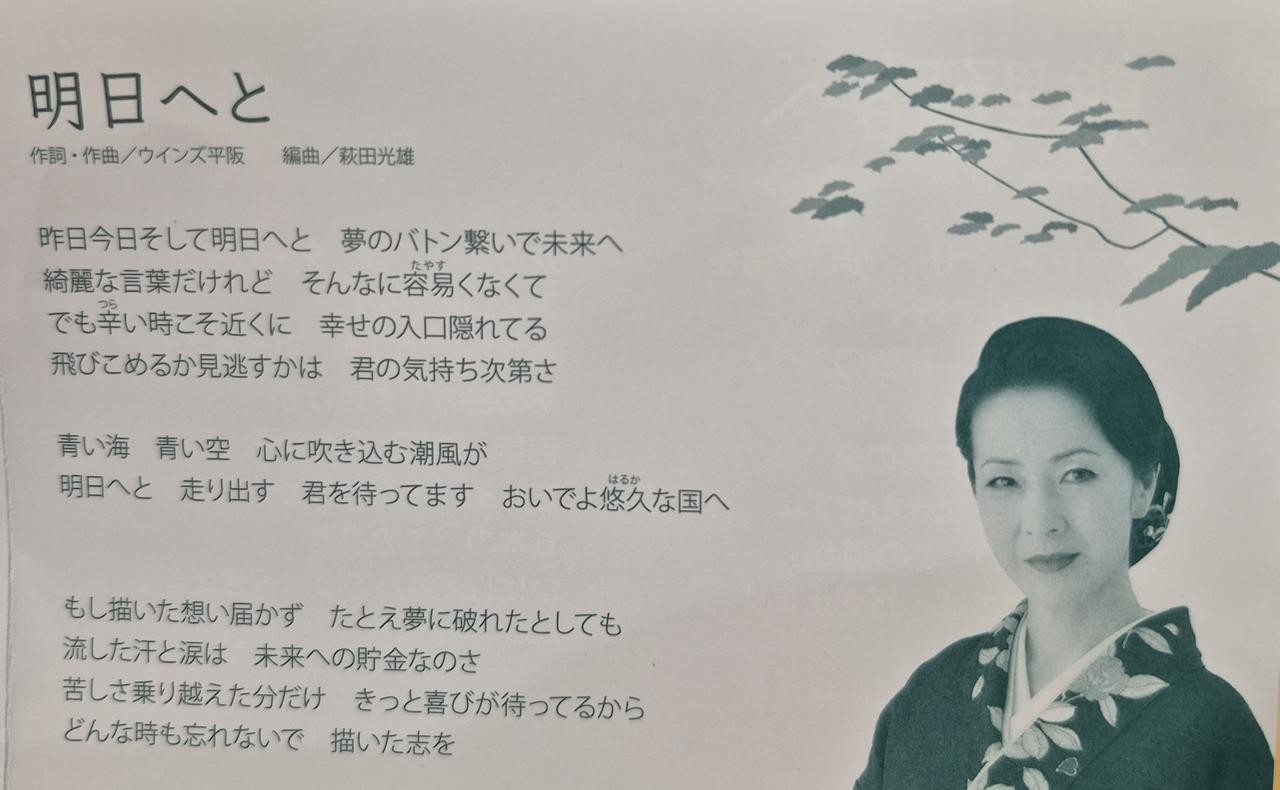 明日へと
作詞・作曲／ウインズ平阪　編曲／萩田光雄
昨日今日そして明日へと　夢のバトン繋いで未来へ
たやす
綺麗な言葉だけれど　そんなに容易くなくて
つら
でも辛い時こそ近くに　幸せの入口隠れてる
飛びこめるか見逃すかは　君の気持ち次第さ
青い海　青い空　心に吹き込む潮風が
はるか
明日へと　走り出す　君を待ってます　おいでよ悠久な国へ
もし描いた想い届かず　たとえ夢に破れたとしても
流した汗と涙は　未来への貯金なのさ
苦しさ乗り越えた分だけ　きっと喜びが待ってるから
どんな時も忘れないで　描いた志を